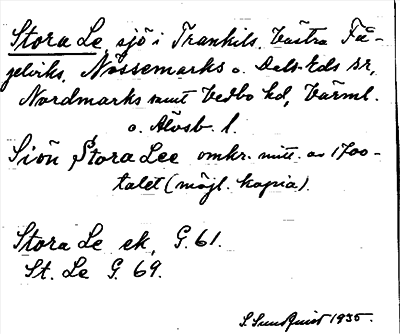 Stora Le, sjö i Trankils, Västra Få-
gelviks, Nössemarks o. Dals-Eds sr,
Nordmarks samt Vedbo hd, Värml.
o. Älvsb. l.
Siön Stora Lee omkr. mitt. av 1700-
talet (möjl. kopia).
Stora Le ek, G. 61.
St. Le G. 69.
S. Sundquist 1935.